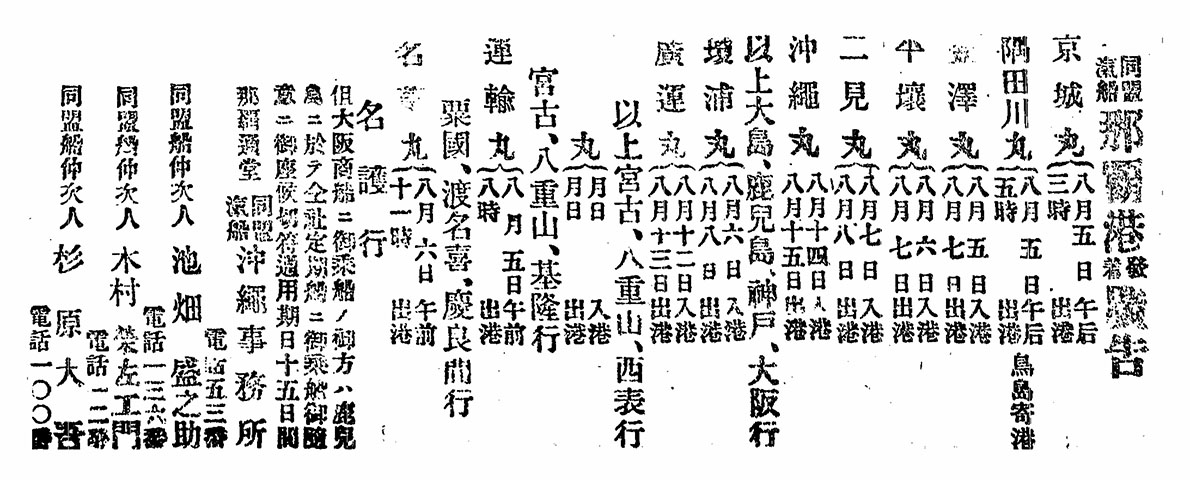 同盟
滊船
那覇港發着廣告
京城丸 八月五日午后三時出港
隅田川丸 八月五日午后五時出港 鳥島寄港
澤丸 八月五日入港 八月七日出港
平壤丸 八月六日入港 八月七日出港
二見丸 八月七日入港 八月八日出港
沖繩丸 八月十四日入港 八月十五日出港
以上大島、鹿兒島、神戸、大阪行
壇浦丸 八月六日入港 八月八日出港
廣運丸 八月十二日入港 八月十三日出港
以上宮古、八重山、西表行
丸 月日入港 月日出港
宮古、八重山、基隆行
運輸丸 八月五日午前八時出港
粟國、渡名喜、慶良間行
名丸 八月六日午前十一時出港
名護行
但大阪商船ニ御乘船ノ御方ハ鹿兒
島ニ於テ仝社定期船ニ御乘船御隨
意ニ御座候切符通用期日十五日間
那覇通堂
同盟
滊船
沖繩事務所
電話五三番
同盟船仲次人 池畑盛之助
電話一三六番
同盟船仲次人 木村榮左工門
電話二二番
同盟船仲次人 杉原大吾
電話一〇〇番